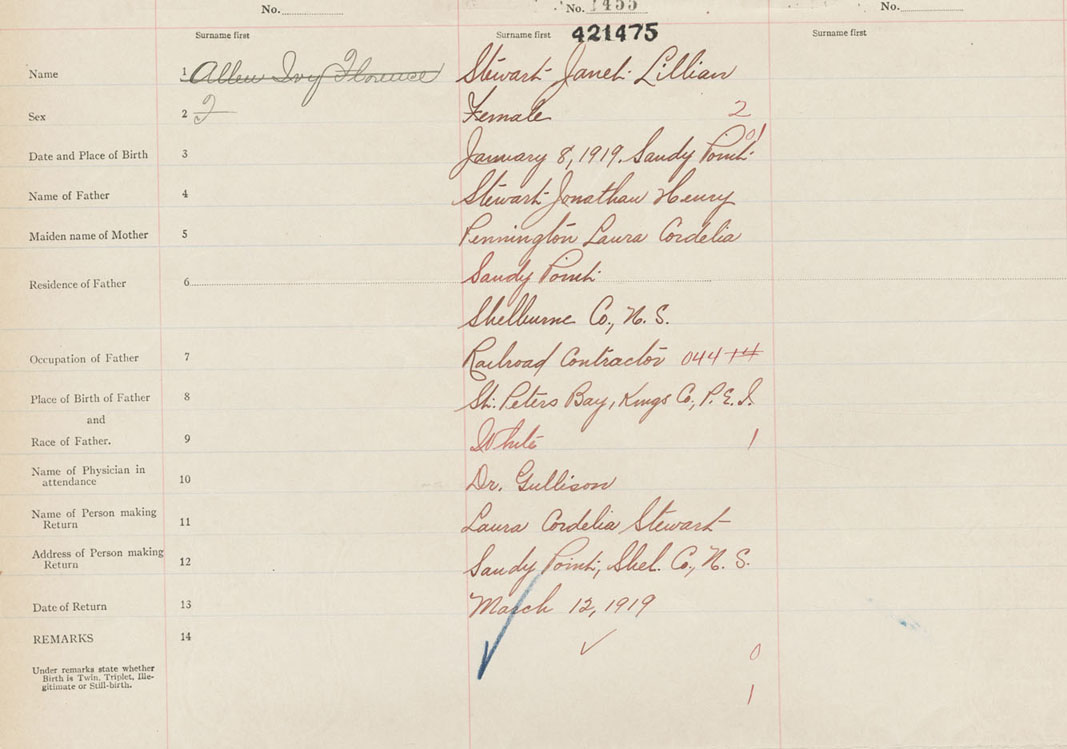 No. No. 1455 No.
Surname first Surname first 421475 Surname first
Name 1 Allen Ivy Florence Stewart Janet Lillian
Sex 2 F Female 2
Date and Place of Birth 3 January 8, 1919. Sandy Point 01
Name of Father 4 Stewart Jonathan Henry
Maiden name of Mother 5 Pennington Laura Cordelia
Residence of Father 6 Sandy Point
Shelburne Co., N. S.
Occupation of Father 7 Railroad Contractor 044 14
Place of Birth of Father 8 St. Peters Bay, Kings Co., P. E. I.
and
Race of Father. 9 White 1
Name of Physician in
attendance 10 Dr. Gullison
Name of Person making
Return 11 Laura Cordelia Stewart
Address of Person making
Return 12 Sandy Point, Shel. Co., N. S.
Date of Return 13 March 12, 1919
REMARKS 14
Under remarks state whether
Birth is Twin, Triplet, Ille-
gitimate or Still-birth.
0
1